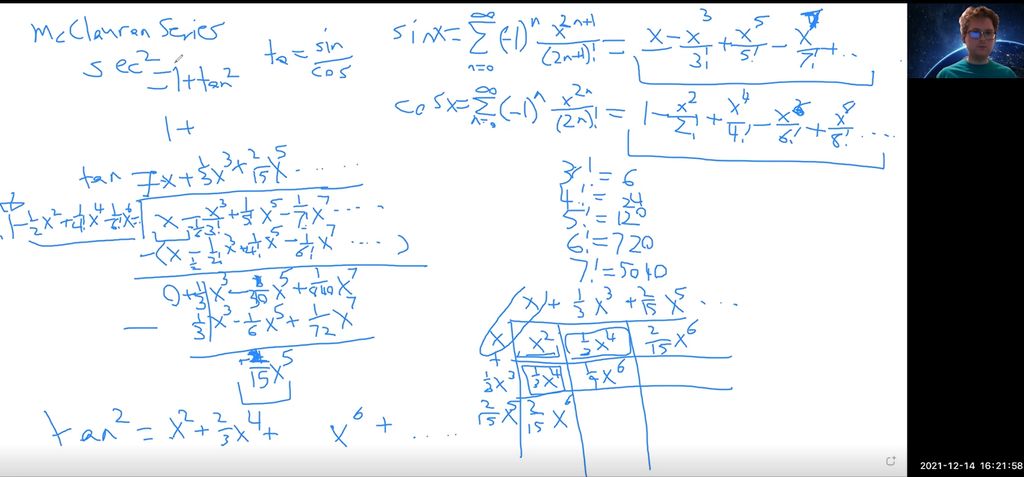 McClauran Series
sec² = 1 + tan²
ta = sin/cos
1 +
sinx = ∑_{n=0}^{∞} (-1)^n x^{2n+1}/(2n+1)! = x - x³/3! + x⁵/5! - x⁷/7! + ..
cosx = ∑_{n=0}^{∞} (-1)^n x^{2n}/(2n)! = 1 - x²/2! + x⁴/4! - x⁶/6! + x⁸/8! ....
tan = x + 1/3 x³ + 2/15 x⁵ ....
1 - 1/2 x² + 1/4! x⁴ - 1/6! x⁶
x - x³/3! + 1/5! x⁵ - 1/7! x⁷ ....
-(x - 1/2! x³ + 1/4! x⁵ - 1/6! x⁷ .... )
0 + 1/3 x³ - 1/30 x⁵ + 1/840 x⁷
- 1/3 x³ - 1/6 x⁵ + 1/72 x⁷
/15 x⁵
tan² = x² + 2/3 x⁴ + x⁶ + ....
3! = 6
4! = 24
5! = 120
6! = 720
7! = 5040
x + 1/3 x³ + 2/15 x⁵ ...
x x² 1/3 x⁴ 2/15 x⁶
+
1/3 x³ 1/3 x⁴ 1/9 x⁶
2/15 x⁵ 2/15 x⁶
2021-12-14 16:21:58